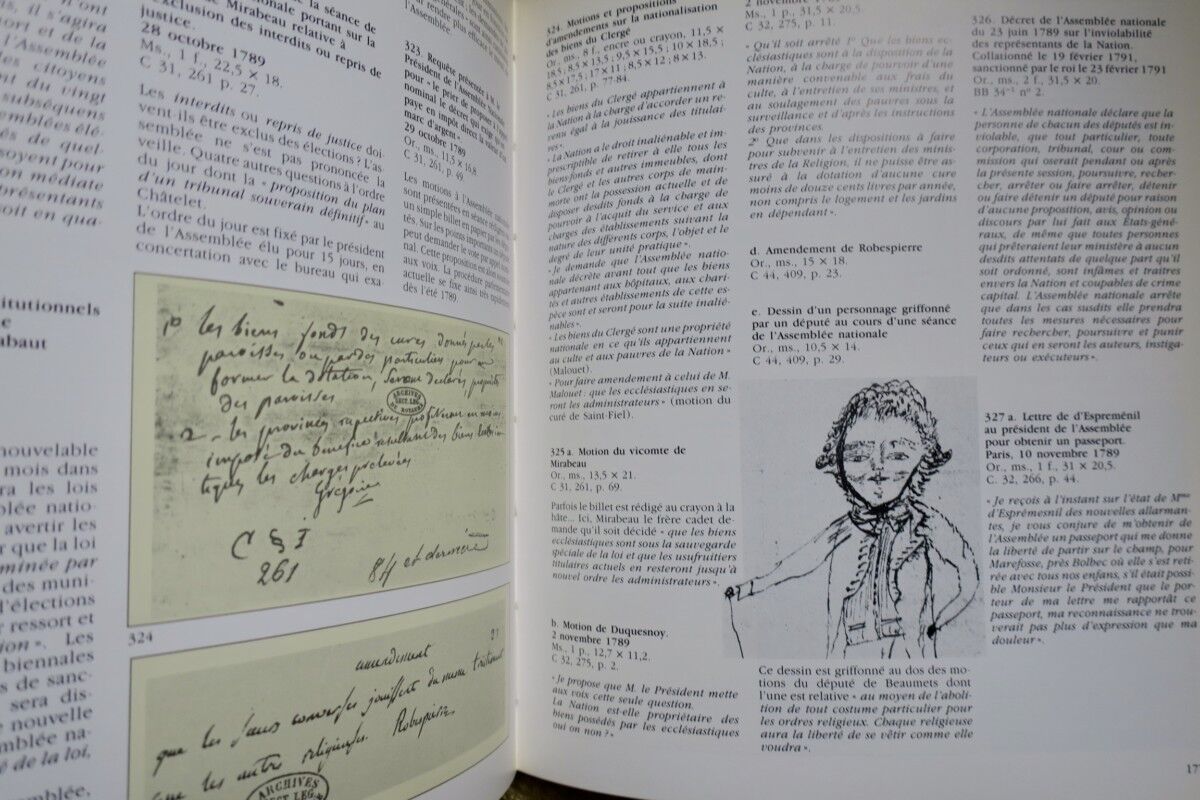 la séance de
nationale portant sur la
de Mirabeau relative à
exclusion des interdits ou repris de
justice.
28 octobre 1789
Ms., 1 f., 22,5 × 18.
C 31, 261 p. 27.
Les interdits ou repris de justice doi-
vent-ils être exclus des élections ? L'as-
semblée ne s'est pas prononcée la
veille. Quatre autres questions à l'ordre
du jour dont la « proposition du plan
d'un tribunal souverain définitif » au
Châtelet.
L'ordre du jour est fixé par le président
de l'Assemblée élu pour 15 jours, en
concertation avec le bureau qui exa-
n'ont
s, il s'agira
et de la
des citoyens
du vingt
subséquens
emblées élé-
de quel-
soyent pour
on médiate
présentants
soit en qua-
itutionnels
e
abaut
nouvelable
mois dans
ra les lois
blée natio-
avertir les
r que la loi
minée par
des muni-
d'élections
ressort et
ion ». Les
biennales
s de sanc-
sera dis-
e nouvelle
emblée na-
é de la loi,
emblée,
1º les biens fonds des cures donnés par les
paroisses ou par des particuliers pour en
former la dotation, seront déclarés propriété
des paroisses
2 - les provinces respectives profiteront en moins
imposé du bénéfice résultant des biens
les charges prélevées
Grégoire
ARCHIVES
SECT. LEG.
DU ROYAUME
C § I
261
84 et dernière
324
amendement
que les Sœurs converses jouissent du même traitement
que les autres religieuses. Robespierre
ARCHIVES
SECT. LEG.
l'Assemblée.
323. Requête présentée à M. le
Président de l'Assemblée nationale
pour « le prier de proposer l'appel
nominal du décret qui exige qu'on
paye en impôt direct la valeur d'un
marc d'argent ».
29 octobre 1789
Or., ms., 11,5 × 16,8.
C 31, 261, p. 49.
Les motions à l'Assemblée nationale
sont présentées en séance rédigées sur
un simple billet en papier par les dépu-
tés. Sur les points importants un député
peut demander le vote par appel nomi-
nal. Cette proposition est alors mise
aux voix. La procédure parlementaire
actuelle se fixe ainsi très rapidement
dès l'été 1789.
324. Motions et propositions
d'amendements sur la nationalisation
des biens du Clergé
Or., ms., 8 f., encre ou crayon, 11,5 ×
18,5 ; 8,5 × 13,5 ; 9,5 × 15,5 ; 10 × 18,5 ;
8,5 × 17,5 ; 17 × 11 ; 8,5 × 12 ; 8 × 13.
C 31, 261, p. 77-84.
« Les biens du Clergé appartiennent à
la Nation à la charge d'accorder un re-
venu égal à la jouissance des titulai-
res ».
« La Nation a le droit inaliénable et im-
prescriptible de retirer à elle tous les
biens-fonds et autres immeubles, dont
le Clergé et les autres corps de main-
morte ont la possession actuelle et de
disposer desdits fonds à la charge de
pourvoir à l'acquit du service et aux
charges des établissements suivant la
nature des différents corps, l'objet et le
degré de leur unité pratique ».
« Je demande que l'Assemblée natio-
nale décrète avant tout que les biens
appartenant aux hôpitaux, aux chari-
tés et autres établissements de cette es-
pèce sont et seront pour la suite inalié-
nables ».
« Les biens du Clergé sont une propriété
nationale en ce qu'ils appartiennent
au culte et aux pauvres de la Nation »
(Malouet).
« Pour faire amendement à celui de M.
Malouet : que les ecclésiastiques en se-
ront les administrateurs » (motion du
curé de Saint-Fiel).
325 a. Motion du vicomte de
Mirabeau
Or., ms., 13,5 × 21.
C 31, 261, p. 69.
Parfois le billet est rédigé au crayon à la
hâte... Ici, Mirabeau le frère cadet de-
mande qu'il soit décidé « que les biens
ecclésiastiques sont sous la sauvegarde
spéciale de la loi et que les usufruitiers
titulaires actuels en resteront jusqu'à
nouvel ordre les administrateurs ».
b. Motion de Duquesnoy.
2 novembre 1789
Ms., 1 p., 12,7 × 11,2.
C 32, 275, p. 2.
« Je propose que M. le Président mette
aux voix cette seule question.
La Nation est-elle propriétaire des
biens possédés par les ecclésiastiques
oui ou non ? »
2 novembre 1789
Ms., 1 p., 31,5 × 20,5.
C 32, 275, p. 11.
« Qu'il soit arrêté 1º Que les biens ec-
clésiastiques sont à la disposition de la
Nation, à la charge de pourvoir d'une
manière convenable aux frais du
culte, à l'entretien de ses ministres, et
au soulagement des pauvres sous la
surveillance et d'après les instructions
des provinces.
2º Que dans les dispositions à faire
pour subvenir à l'entretien des minis-
tres de la Religion, il ne puisse être as-
suré à la dotation d'aucune cure
moins de douze cents livres par année,
non compris le logement et les jardins
en dépendant ».
d. Amendement de Robespierre
Or., ms., 15 × 18.
C 44, 409, p. 23.
e. Dessin d'un personnage griffonné
par un député au cours d'une séance
de l'Assemblée nationale
Or., ms., 10,5 × 14.
C 44, 409, p. 29.
Ce dessin est griffonné au dos des mo-
tions du député de Beaumets dont
l'une est relative « au moyen de l'aboli-
tion de tout costume particulier pour
les ordres religieux. Chaque religieuse
aura la liberté de se vêtir comme elle
voudra ».
326. Décret de l'Assemblée nationale
du 23 juin 1789 sur l'inviolabilité
des représentants de la Nation.
Collationné le 19 février 1791,
sanctionné par le roi le 23 février 1791
Or., ms., 2 f., 31,5 × 20.
BB 34⁻¹ nº 2.
« L'Assemblée nationale déclare que la
personne de chacun des députés est in-
violable, que tout particulier, toute
corporation, tribunal, cour ou com-
mission qui oserait pendant ou après
la présente session, poursuivre, recher-
cher, arrêter ou faire arrêter, détenir
ou faire détenir un député pour raison
d'aucune proposition, avis, opinion ou
discours par lui fait aux États-géné-
raux, de même que toutes personnes
qui prêteraient leur ministère à aucun
desdits attentats de quelque part qu'il
soit ordonné, sont infâmes et traîtres
envers la Nation et coupables de crime
capital. L'Assemblée nationale arrête
que dans les cas susdits elle prendra
toutes les mesures nécessaires pour
faire rechercher, poursuivre et punir
ceux qui en seront les auteurs, instiga-
teurs ou exécuteurs ».
327 a. Lettre de d'Espreménil
au président de l'Assemblée
pour obtenir un passeport.
Paris, 10 novembre 1789
Or., ms., 1 f., 31 × 20,5.
C 32, 266, p. 44.
« Je reçois à l'instant sur l'état de Mme
d'Esprémesnil des nouvelles allarman-
tes, je vous conjure de m'obtenir de
l'Assemblée un passeport qui me donne
la liberté de partir sur le champ, pour
Marefosse, près Bolbec où elle s'est reti-
rée avec tous nos enfans, s'il étoit possi-
ble Monsieur le Président que le por-
teur de ma lettre me rapportât ce
passeport, ma reconnaissance ne trou-
verait pas plus d'expression que ma
douleur ».
17